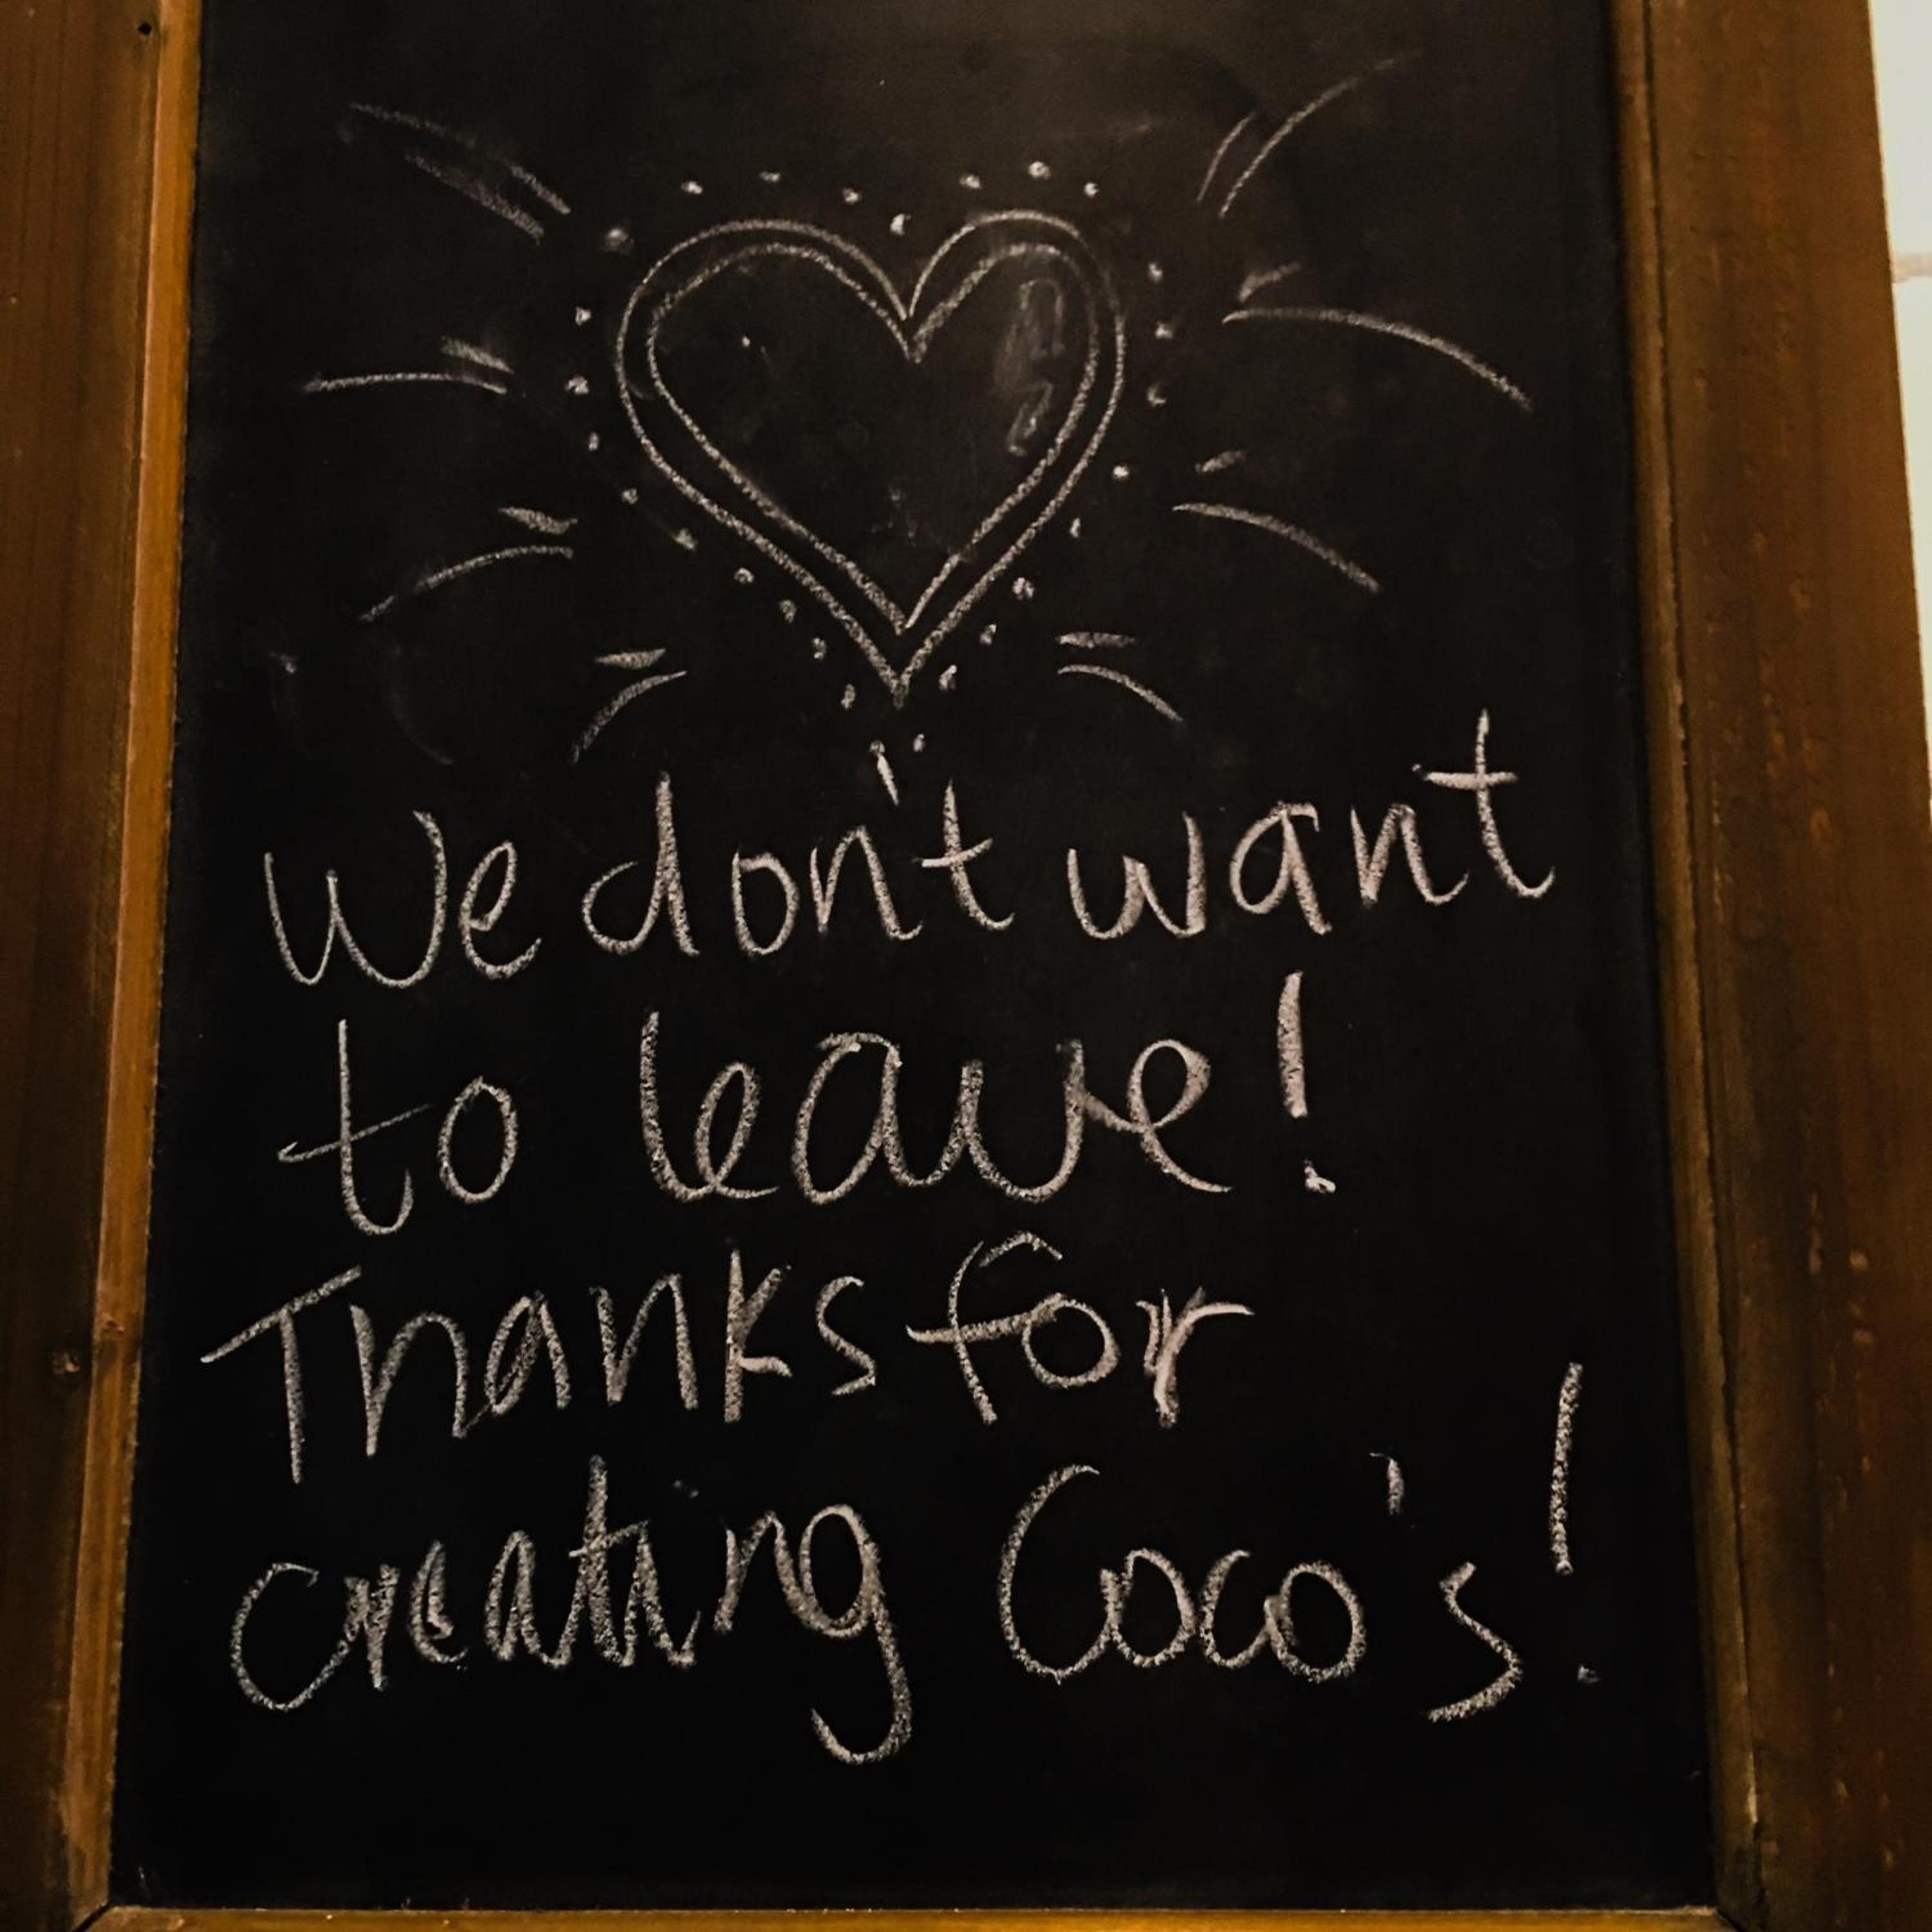 We don't want
to leave!
Thanks for
creating Coco's!